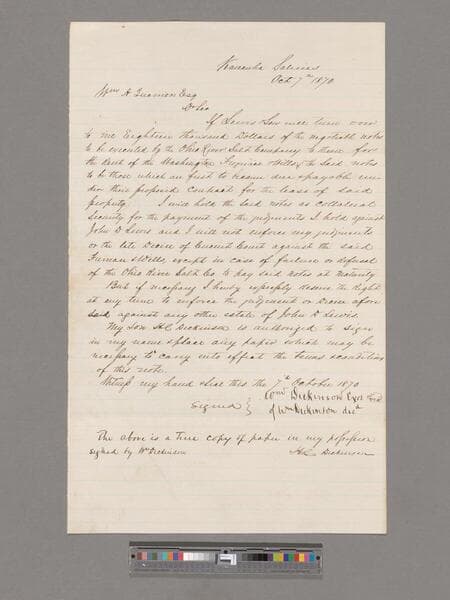 Kanawha Salines
Oct 7th 1870
Wm A Quarrier Esq
Dr Sir
If Lewis Son will turn over
to me Eighteen thousand Dollars of the negotiable notes
to be executed by the Ohio River Salt Company to them for
the Rent of the Washington Furnace & Wells, the said notes
to be those which are first to become due & payable un-
der their proposed contract for the lease of said
property. I will hold the said notes as collateral
security for the payment of the judgments I hold against
John D Lewis and I will not enforce my judgments
or the late Decree of Circuit Court against the said
Furnace & Wells, except in case of failure or refusal
of the Ohio River Salt Co to pay said notes at maturity
But if necessary I hereby expressly reserve the right
at any time to enforce the judgement or Decree afore
said against any other estate of John D Lewis.
My Son H C Dickinson is authorized to sign
in my name & place any paper which may be
necessary to carry into effect the terms & condition
of this note.
Witness my hand & seal this the 7th October 1870
Signed } Wm Dickinson Exor
of Wm Dickinson decd
The above is a true copy of paper in my possession
signed by Wm Dickinson H C Dickinson